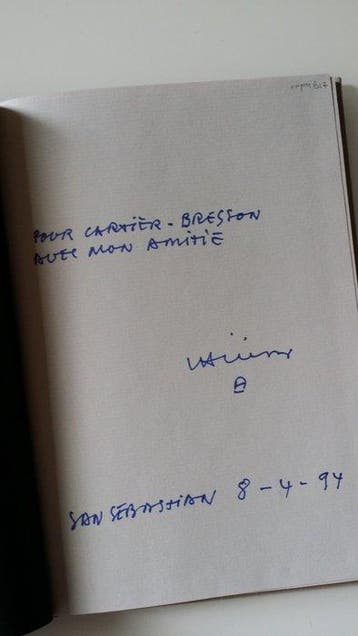 POUR CARTIER-BRESSON
AVEC MON AMITIÉ
SAN SEBASTIAN 8-4-94